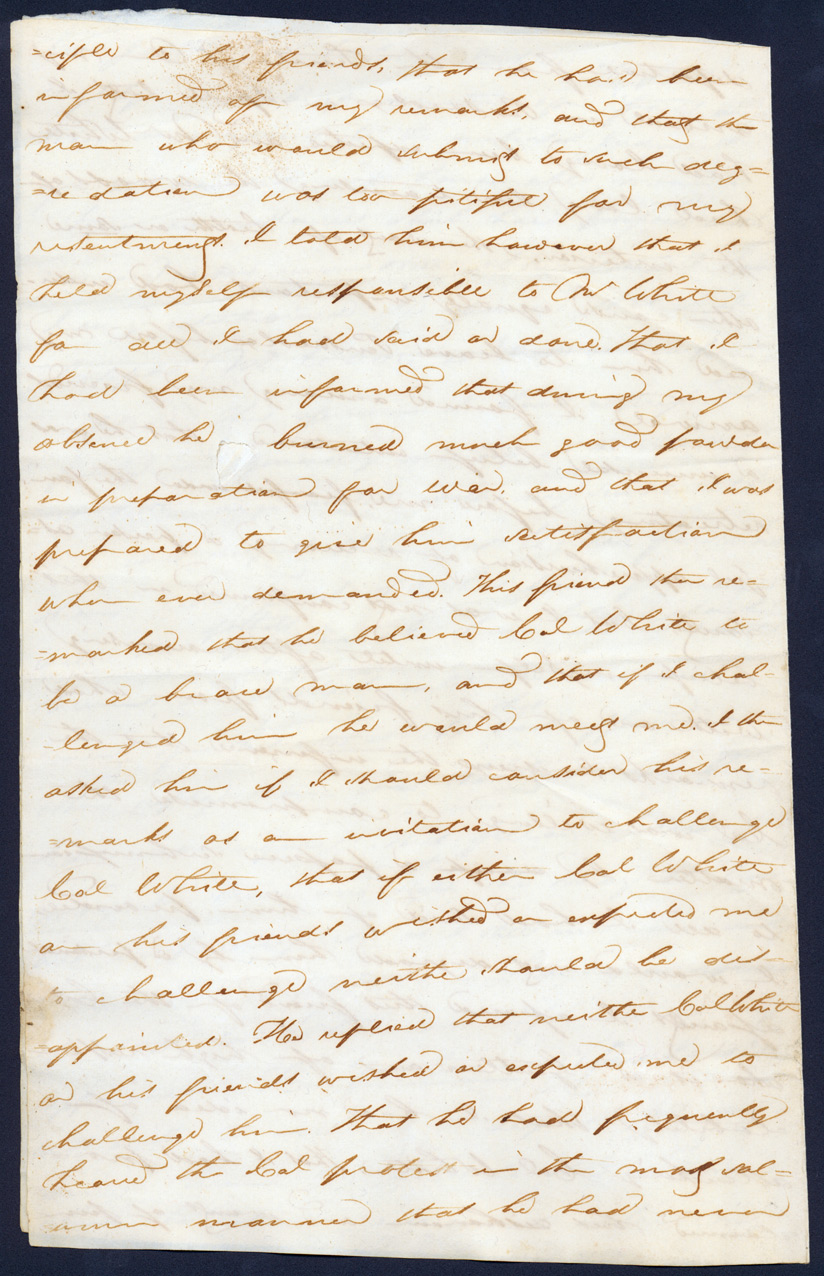 =ciple to his friends, that he had been
informed of my remarks, and that the
man who would submit to such deg=
=redation was too pitiful for my
resentment. I told him however that I
held myself responsible to Mr White
for all I had said or done. That I
had been informed that during my
absence he burned much good powder
in preparation for war, and that I was
prepared to give him satisfaction
when ever demanded. This friend then re=
=marked that he believed Col White to
be a brave man, and that if I chal-
-lenged him he would meet me. I then
asked him if I should consider his re=
=marks as an invitation to challenge
Col White, that if either Col White
or his friends wished or expected me
to challenge neither should be dis-
=appointed. He replied that neither Col White
or his friends wished or expected me to
challenge him. That he had frequently
heard the Col protest in the most sol=
=emn manner that he had never